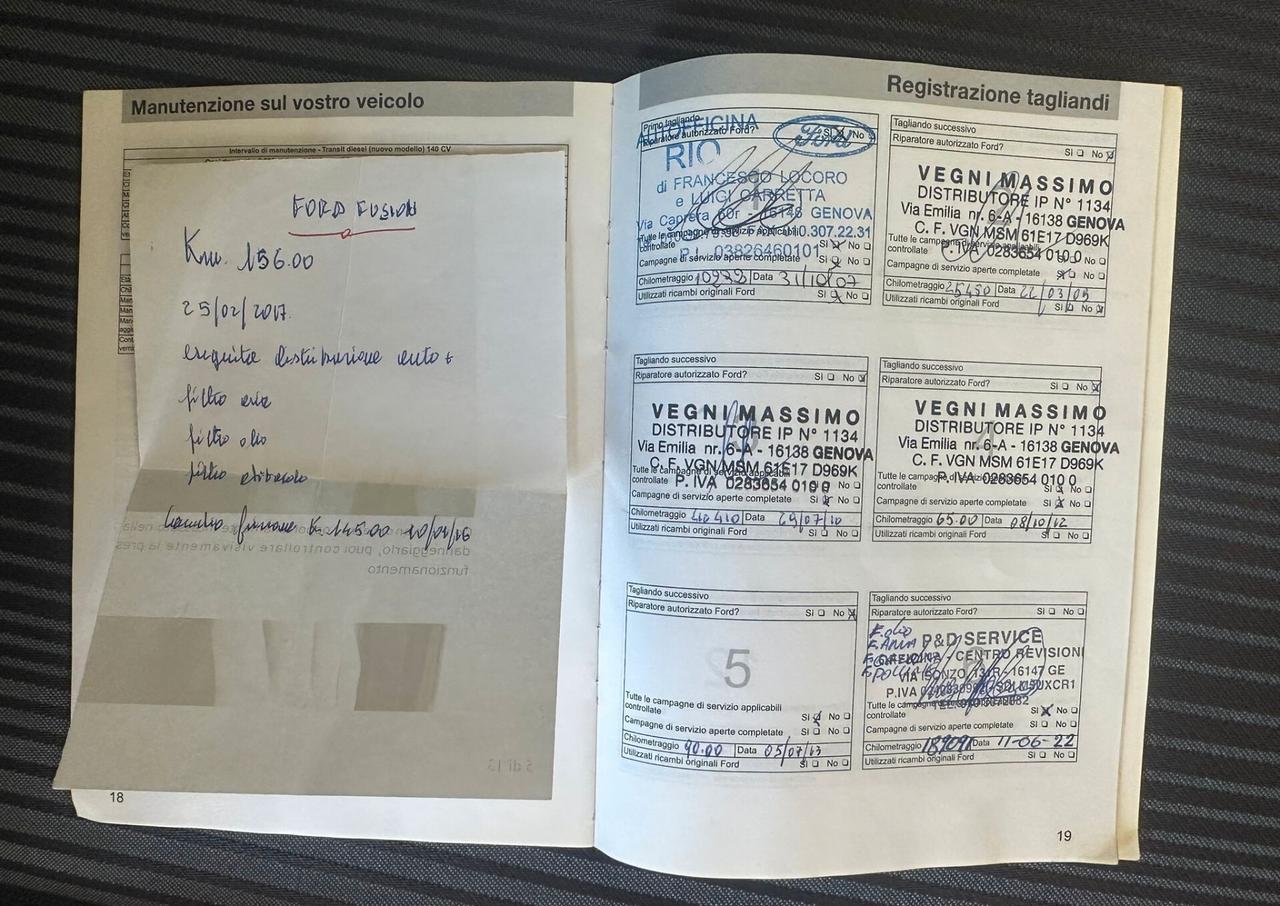 Manutenzione sul vostro veicolo
Intervallo di manutenzione - Transit diesel (nuovo modello) 140 CV
FORD FUSION
Km. 156.00
25/02/2017.
eseguita distribuzione auto +
filtro aria
filtro olio
filtro abitacolo
K 145.00
danneggiarlo, puoi controllare visivamente la pres
funzionamento
5 di 13
18
Registrazione tagliandi
Primo tagliando
Riparatore autorizzato Ford? Sì No
AUTOFFICINA
Ford
RIO
di FRANCESCO LOCORO
e LUIGI CARRETTA
Via Capreta 60r - 16148 GENOVA
0.307.22.31
Tutte le campagne di servizio applicabili
controllate Sì No
P.I. 03826460101
Campagne di servizio aperte completate Sì No
Chilometraggio Data 31/10/07
Utilizzati ricambi originali Ford Sì No
Tagliando successivo
Riparatore autorizzato Ford? Sì No
2
VEGNI MASSIMO
DISTRIBUTORE IP N° 1134
Via Emilia nr. 6-A - 16138 GENOVA
C. F. VGN MSM 61E17 D969K
P. IVA 0283654 010 0
Tutte le campagne di servizio applicabili
controllate Sì No
Campagne di servizio aperte completate Sì No
Chilometraggio 25450 Data 22/03/09
Utilizzati ricambi originali Ford Sì No
Tagliando successivo
Riparatore autorizzato Ford? Sì No
VEGNI MASSIMO
DISTRIBUTORE IP N° 1134
Via Emilia nr. 6-A - 16138 GENOVA
C. F. VGN MSM 61E17 D969K
P. IVA 0283654 010 0
Tutte le campagne di servizio applicabili
controllate Sì No
Campagne di servizio aperte completate Sì No
Chilometraggio Data 29/07/10
Utilizzati ricambi originali Ford Sì No
Tagliando successivo
Riparatore autorizzato Ford? Sì No
4
VEGNI MASSIMO
DISTRIBUTORE IP N° 1134
Via Emilia nr. 6-A - 16138 GENOVA
C. F. VGN MSM 61E17 D969K
P. IVA 0283654 010 0
Tutte le campagne di servizio applicabili
controllate Sì No
Campagne di servizio aperte completate Sì No
Chilometraggio 65.00 Data 08/10/12
Utilizzati ricambi originali Ford Sì No
Tagliando successivo
Riparatore autorizzato Ford? Sì No
5
Tutte le campagne di servizio applicabili
controllate Sì No
Campagne di servizio aperte completate Sì No
Chilometraggio 90.00 Data 05/07/13
Utilizzati ricambi originali Ford Sì No
Tagliando successivo
Riparatore autorizzato Ford? Sì No
F. olio
F. ARIA
P&D SERVICE
OFFICINA - CENTRO REVISIONI
VIA ISONZO, 16147 GE
P.IVA
Tutte le campagne di servizio applicabili
controllate Sì No
Campagne di servizio aperte completate Sì No
Chilometraggio Data 11-06-22
Utilizzati ricambi originali Ford Sì No
19